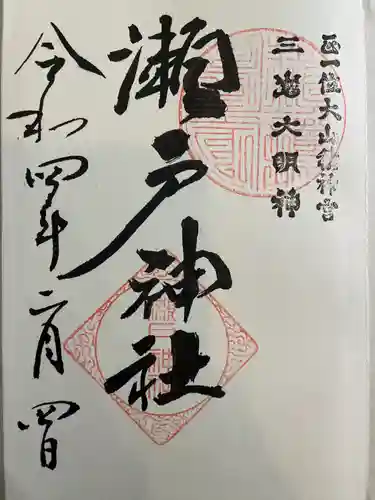 正一位大山積神宮
三島大明神
瀬戸神社
令和四年二月四日